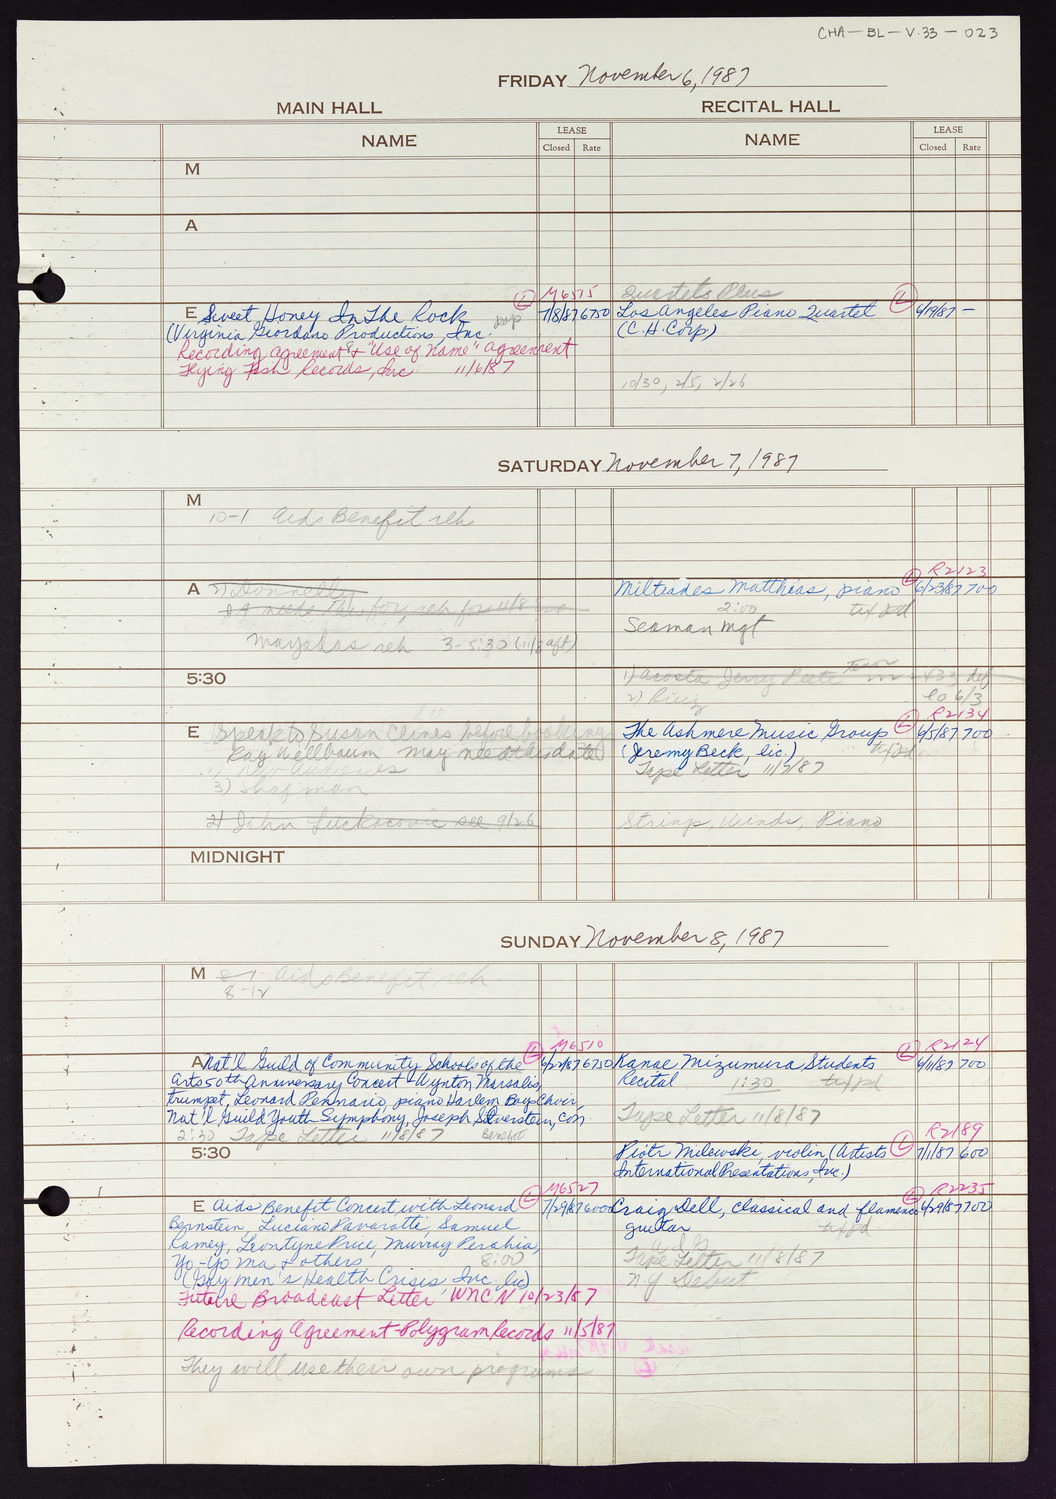 CHA-BL-V.33-023
FRIDAY November 6, 1987
MAIN HALL
RECITAL HALL
NAME
LEASE
Closed Rate
NAME
LEASE
Closed Rate
M
A
M6515
Quartets Plus
E Sweet Honey In The Rock pop L 7/8/87 6750
(Virginia Giordano Productions, Inc.
Recording agreement & "Use of Name" agreement
Flying Fish Records, Inc 11/6/87
Los Angeles Piano Quartet L 6/19/87 —
(C.H. Corp)
10/30, 2/5, 2/26
SATURDAY November 7, 1987
M
10-1 Aids Benefit reh
A 2) Donnelly
needs this for reh for 11/8
Mazahas reh 3-5:30 (11/8 aft)
R2123
Miltiades Matthias, piano L 6/23/87 700
2:00 tix pd
Seaman Mgt
5:30
1) Acosta Jerry Peete tenor def
2) Ruiz 6/3
R2134
E Speak to Susan Clines before booking
Ray Wellbaum may need this date
3) Shapman
2) John Luckacovic see 9/26
The Ashmere Music Group L 6/5/87 700
(Jeremy Beck, lic.) tix pd
Tape Letter 11/7/87
Strings, Winds, Piano
MIDNIGHT
SUNDAY November 8, 1987
M 8-1 Aids Benefit reh
8-12
M6510
A Nat'l Guild of Community Schools of the L 6/22/87 6750
Arts 50th Anniversary Concert - Wynton Marsalis,
trumpet, Leonard Pennario, piano Harlem Boys Choir,
Nat'l Guild Youth Symphony, Joseph Silverstein, con
2:30 Tape Letter 11/8/87 Benefit
R2124
Kanae Mizumura Students L 6/11/87 700
Recital 1:30 tix pd
Tape Letter 11/8/87
5:30
R2189
Piotr Milewski, violin (Artists L 7/1/87 600
International Presentations, Inc.)
M6527
E Aids Benefit Concert with Leonard L 7/29/87 6000
Bernstein, Luciano Pavarotti, Samuel
Ramey, Leontyne Price, Murray Perahia,
Yo-Yo Ma & others 8:00
(Gay Men's Health Crisis, Inc. lic)
Future Broadcast Letter WNCN 10/23/87
Recording Agreement Polygram Records 11/5/87
They will use their own programs
R2235
Craig Dell, classical and flamenco L 9/29/87 700
guitar tix pd
Tape Letter 11/8/87
N.Y. Debut